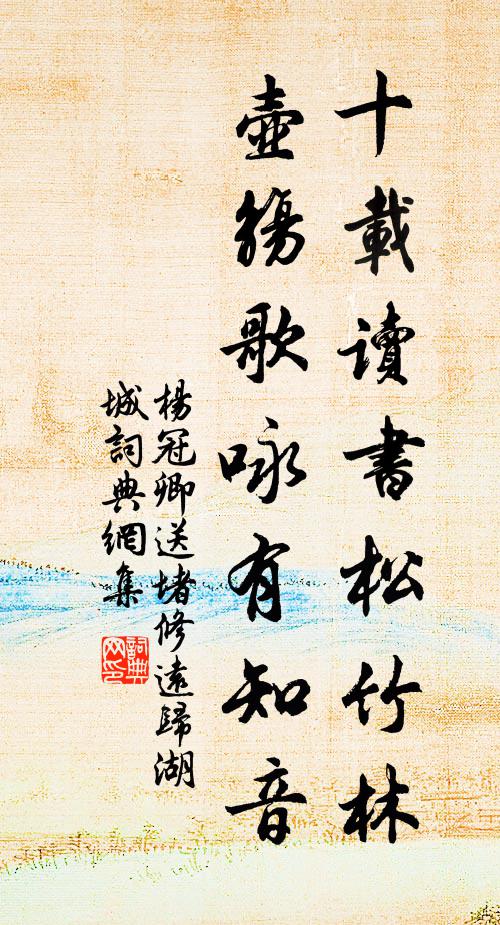 十載讀書松竹林
壺觴歌咏有知音
楊冠卿送堵修遠歸湖
城詞典網集
詞典網印